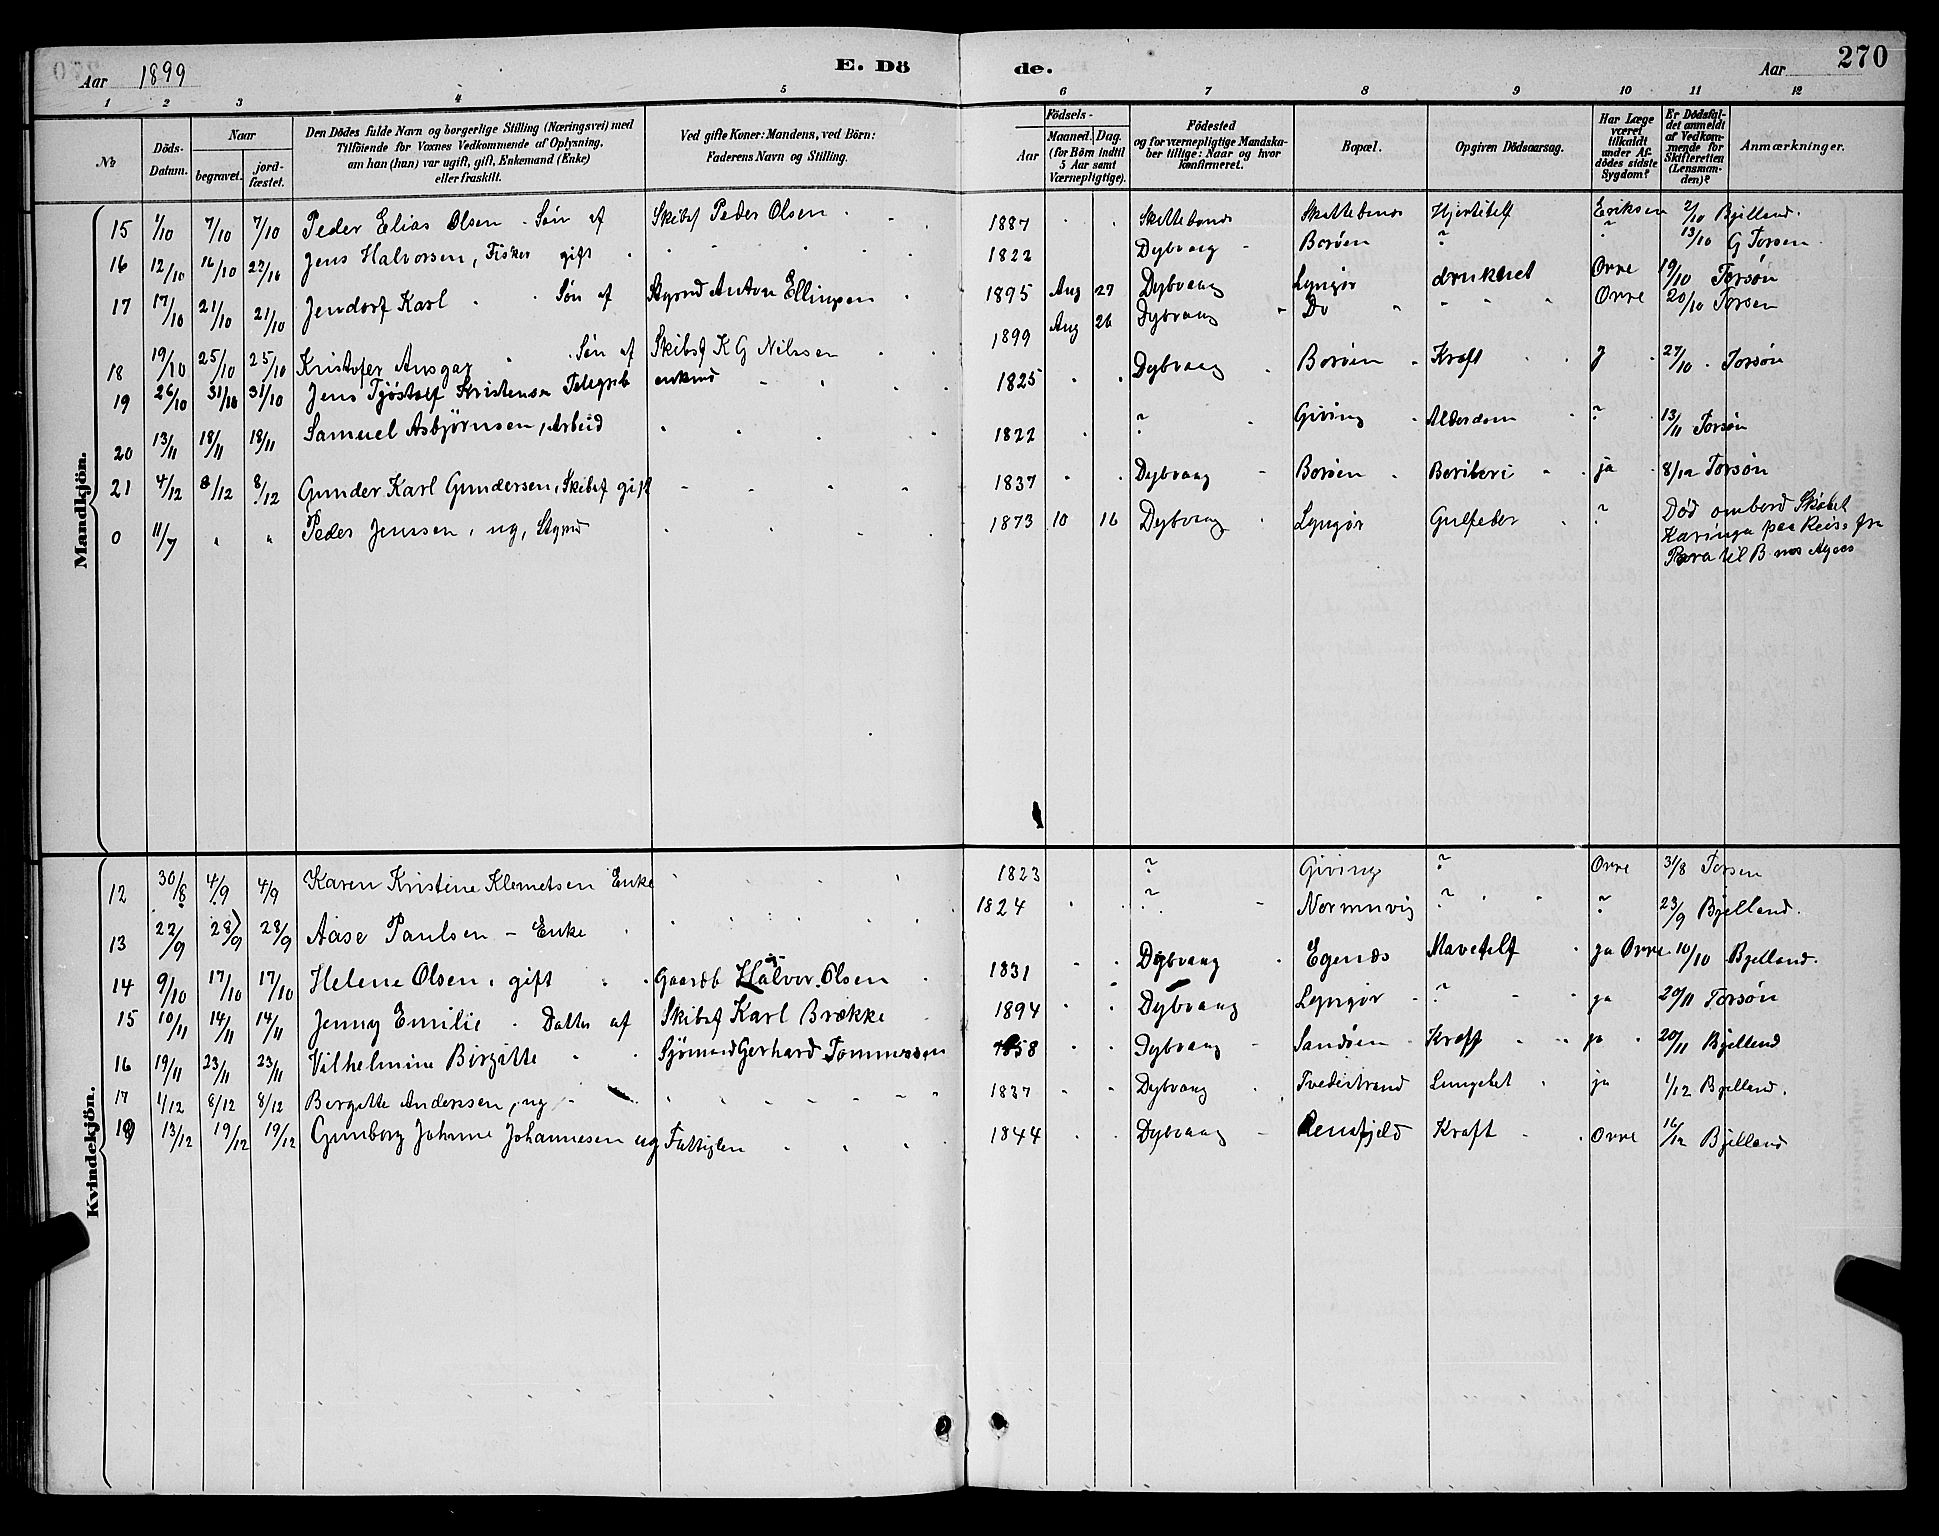 Aar 1899
E. Dö
de.
Aar
270
1 2 3 4 5 6 7 8 9 10 11 12
No
Döds-Datum.
Naar
begravet. jord-fæstet.
Den Dödes fulde Navn og borgerlige Stilling (Næringsvei) med
Tilföiende for Voxnes Vedkommende af Oplysning,
om han (hun) var ugift, gift, Enkemand (Enke)
eller fraskilt.
Ved gifte Koner: Mandens, ved Börn:
Faderens Navn og Stilling.
Födsels-
Aar Maaned. Dag.
(for Börn indtil
5 Aar samt
Værnepligtige).
Födested
og for værnepligtige Mandska-
ber tillige: Naar og hvor
konfirmeret.
Bopæl.
Opgiven Dödsaarsag.
Har Læge
været
tilkaldt
under Af-
dödes sidste
Sygdom?
Er Dödsfal-
det anmeldt
af Vedkom-
mende for
Skifteretten
(Lensman-
den)?
Anmærkninger.
Mandkjön.
15 1/10 7/10 7/10 Peder Elias Olsen - Søn af Skibsf Peder Olsen 1887 Skottebonds Hjertefelf Eriksen 2/10 Bjelland.
16 12/10 16/10 22/10 Jens Halvorsen, Fisker gift 1822 Dybvaag Borøen ? 13/10 G Torsen
17 17/10 21/10 21/10 Jendorf Karl Søn af Styrmd Anton Ellingsen 1895 Aug 27 Dybvaag Lyngør druknet Orre 19/10 Torsøn
1899 Aug 26 Dybvaag Do " Orre 20/10 Torsen
18 19/10 25/10 25/10 Kristofer Ansgar Søn af Skibsf K G Nilssen
19 26/10 31/10 31/10 Jens Tjøstolf Kristensen Telegrb enkmd 1825 Dybvaag Borøen Kræft J 27/10 Torsøn
20 13/11 18/11 18/11 Samuel Asbjørnsen, Arbeid 1822 ? Giving Alderdom ? 13/11 Torsøn
21 4/12 8/12 8/12 Gunder Karl Gundersen, Skibsf gift 1837 Dybvaag Borøen Beriberi ja 8/12 Torsøn
0 11/7 " " Peder Jenssen, ug, Styrmd 1873 10 16 Dybvaag Lyngør Gulfeber ? Død ombord Skibet
Karinga paa Reise fra
Para til B nos Ayres
Kvindekjön.
12 30/8 4/9 4/9 Karen Kristine Klemetsen Enke 1823 ? Giving ? Orre 31/8 Torsen
13 22/9 28/9 28/9 Aase Paulsen - Enke 1824 ? ? ? 23/9 Bjelland.
14 9/10 17/10 17/10 Helene Olsen, gift Gaardb Halvor Olsen 1831 Dybvaag Egenæs Mavetilf ja Orre 10/10 Bjelland.
15 10/11 14/11 14/11 Jenny Emilie - Datter af Skibsf Karl Brække 1894 Dybvaag Lyngør ? ja 20/11 Torsøn
16 19/11 23/11 23/11 Vilhelmine Birgitte Sjømand Gerhard Tommessen 1858 Dybvaag Sandøen Kræft ja 20/11 Bjelland
17 1/12 8/12 8/12 Birgitte Anderssen, ug 1837 Dybvaag Tvedestrand Lungebet ja 1/12 Bjelland.
18 13/12 19/12 19/12 Gunborg Johanne Johannesen ug Fattiglem 1844 Dybvaag Kræft Orre 16/12 Bjelland